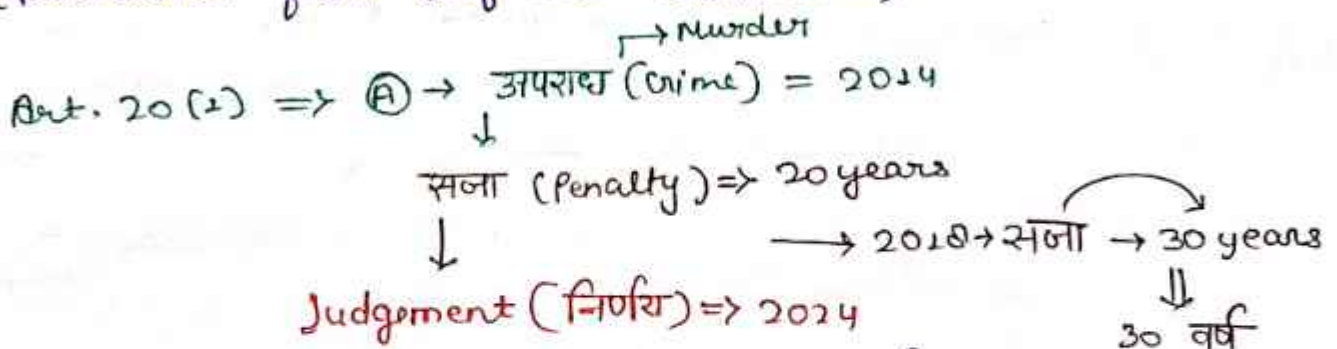 → Murder
Art. 20 (2) => Ⓐ → अपराध (Crime) = 2014
↓
सजा (Penalty) => 20 years
↓ → 2018 → सजा → 30 years
⇓
Judgement (निर्णय) => 2024
30 वर्ष